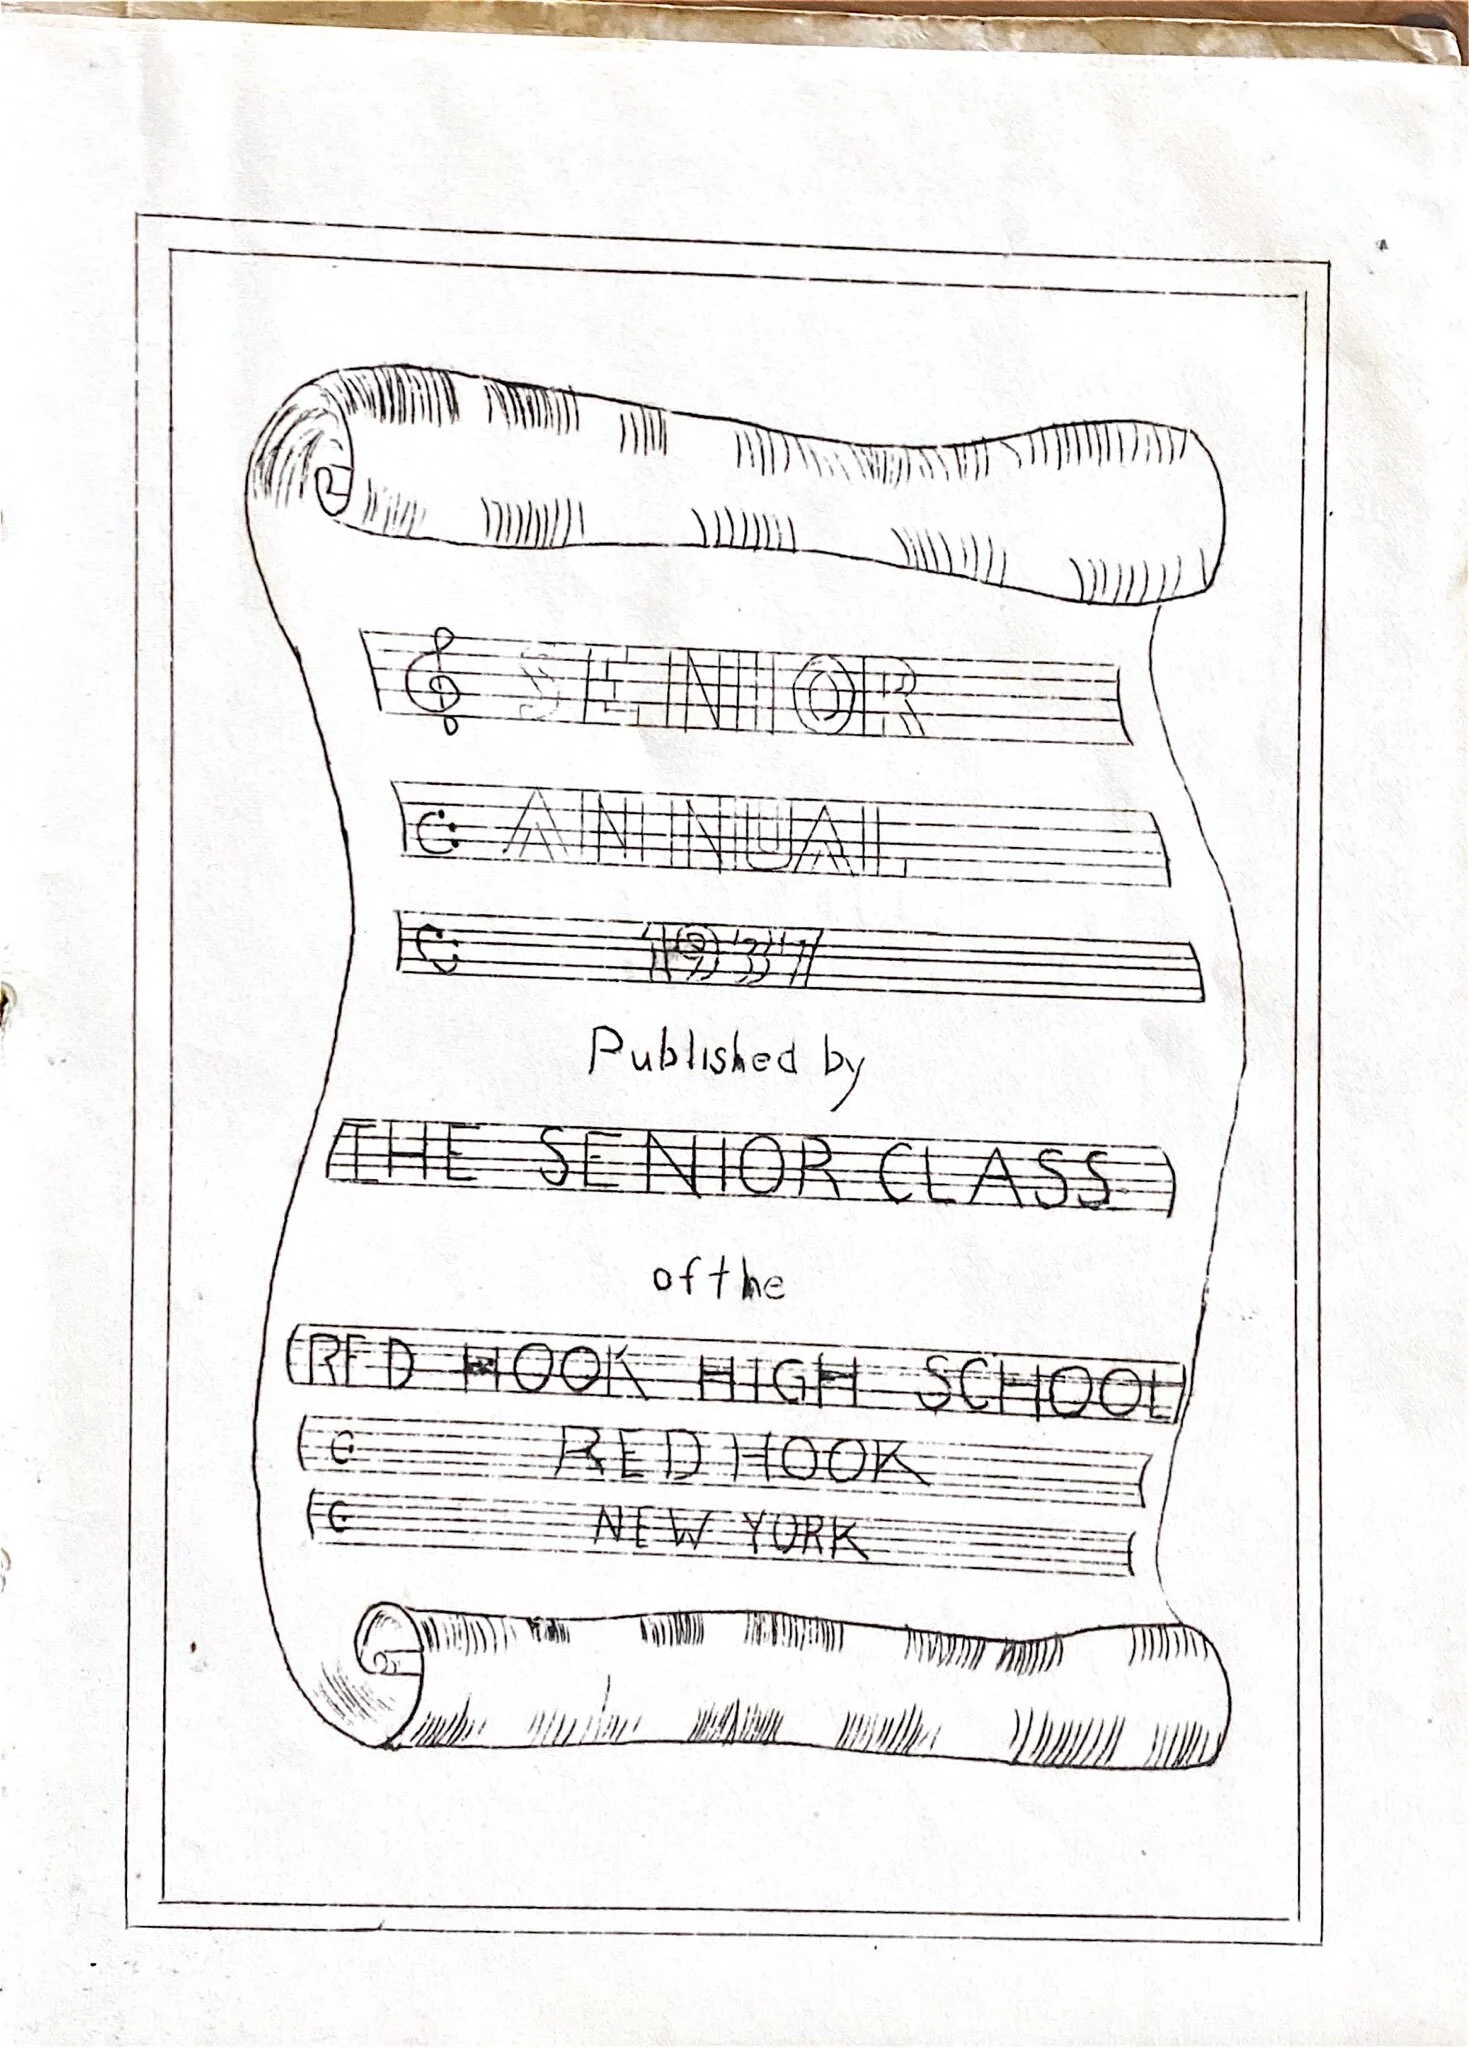 SENIOR
ANNUAL
1937
Published by
THE SENIOR CLASS
of the
RED HOOK HIGH SCHOOL
RED HOOK
NEW YORK